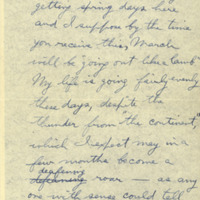 getting spring days here
and I suppose by the time
you receive this, March
will be going out like a lamb"
My life is going fairly evenly
these days, despite the
thunder from "the continent,"
which I expect may in a
few months become a
deafening
roar — as any
one with sense could tell